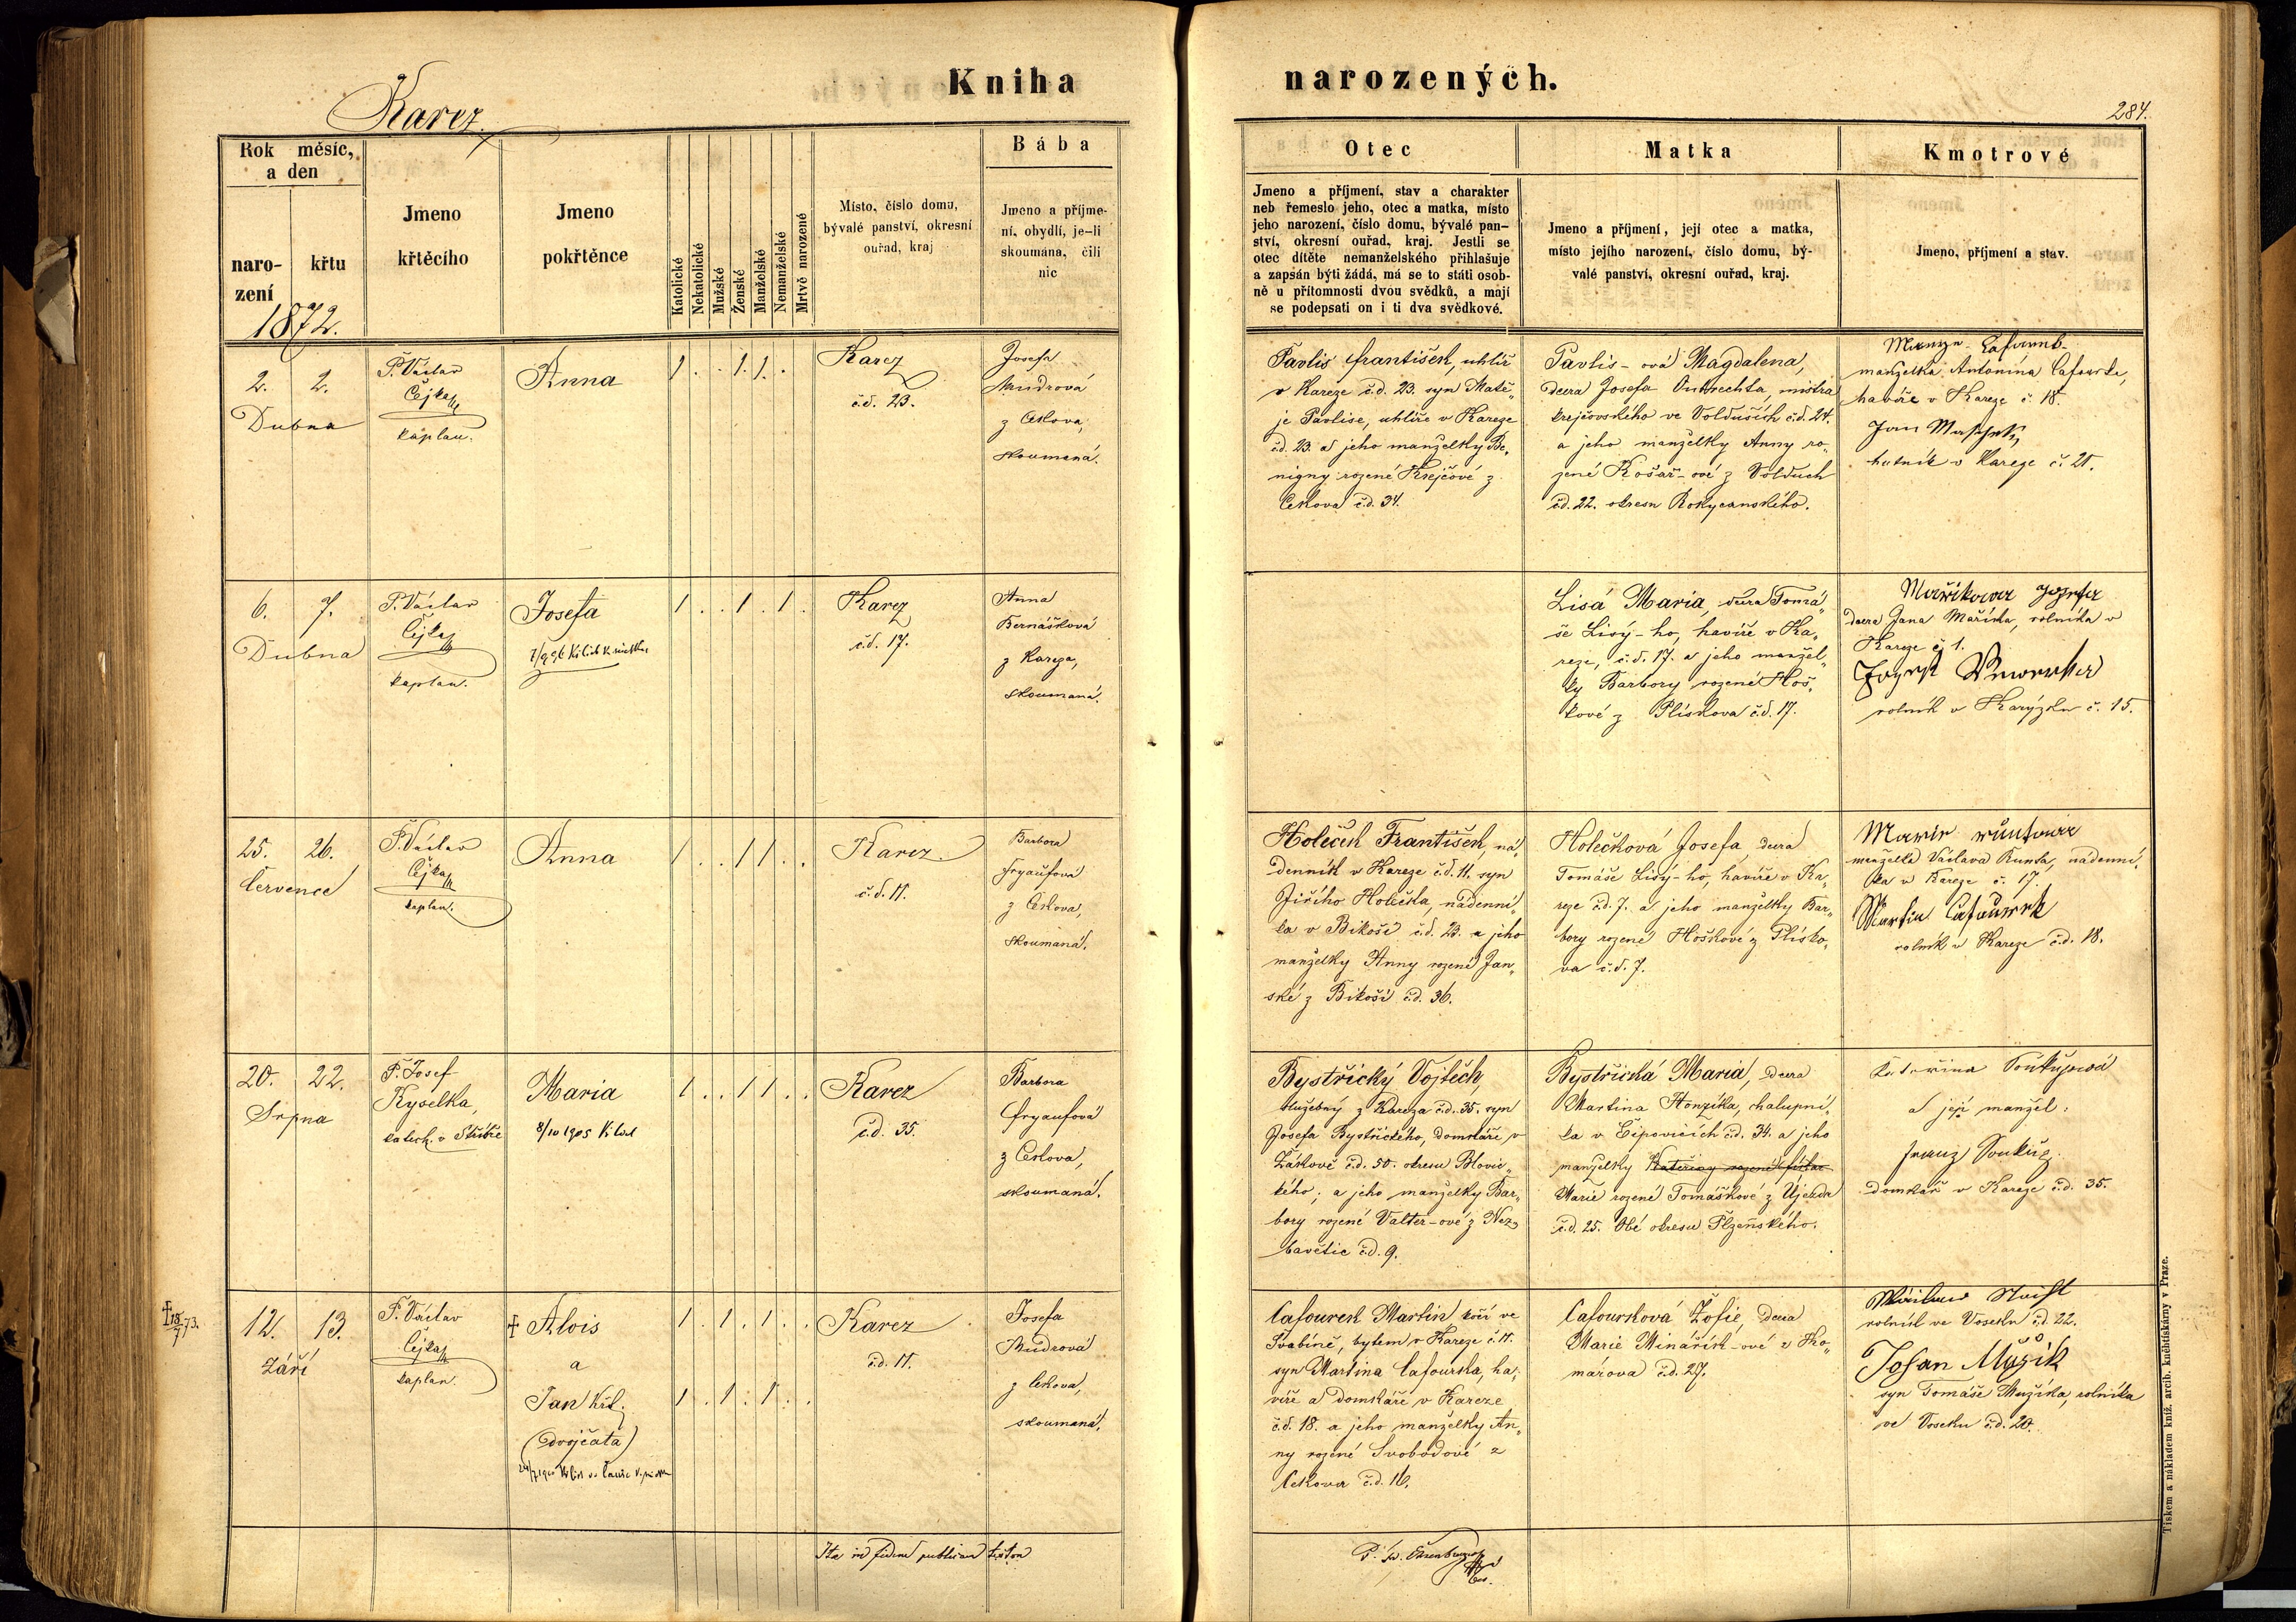 Kniha
narozených.
Karez
284.
Rok měsíc,
a den
naro-
zení
křtu
1872.
Jmeno
křtěcího
Jmeno
pokřtěnce
Katolické
Nekatolické
Mužské
Ženské
Manželské
Nemanželské
Mrtvě narozené
Místo, číslo domu,
bývalé panství, okresní
ouřad, kraj
Bába
Jmeno a příjme-
ní, obydlí, je-li
skoumána, čili
nic
Otec
Jmeno a příjmení, stav a charakter
neb řemeslo jeho, otec a matka, místo
jeho narození, číslo domu, bývalé pan-
ství, okresní ouřad, kraj. Jestli se
otec dítěte nemanželského přihlašuje
a zapsán býti žádá, má se to státi osob-
ně u přítomnosti dvou svědků, a mají
se podepsati on i ti dva svědkové.
Matka
Jmeno a příjmení, její otec a matka,
místo jejího narození, číslo domu, bý-
valé panství, okresní ouřad, kraj.
Kmotrové
Jmeno, příjmení a stav.
2. 2.
Dubna
P. Václav
Čejka
kaplan.
Anna
1 . . 1. 1. .
Karez
č.d. 23.
Josefa
Mudrová
z Cekova,
skoumaná.
Pavlis František, uhlíř
v Kareze č.d. 23. syn Matě„
je Pavlise, uhlíře v Kareze
č.d. 23. a jeho manželky Be„
nigny rozené Krejčové z
Cekova č.d. 34.
Pavlis-ová Magdalena,
dcera Josefa Outrechta, mistra
krejčovského ve Volduších č.d. 24.
a jeho manželky Anny ro„
zené Košař-ové z Volduch
č.d. 22. okresu Rokycanského.
manželka Antonína Cafourka,
havíře v Kareze č. 18.
Jan
hutník v Kareze č. 21.
6. 7.
Dubna
P. Václav
Čejka
kaplan.
Josefa
1 . . 1 . 1 .
Karez
č.d. 17.
Anna
Bernášková
z Kareza,
skoumaná.
Lisá Maria, dcera Tomá„
še Lisý-ho, havíře v Ka„
reze, č.d. 17. a jeho manžel„
ky Barbory rozené Hoš„
kové z Plískova č.d. 17.
Mařikowa Josefa
dcera Jana Maříka, rolníka v
Kareze čj 1.
Josef
rolník v Karýzku č. 15.
25. 26.
července
P. Václav
Čejka
kaplan.
Anna
1 . . 1 1 . .
Karez.
č.d. 11.
Barbora
Fryaufová
z Cekova,
skoumaná.
Holeček František, ná„
denník v Kareze č.d. 11. syn
Jiřího Holečka, nádenní„
ka v Bikoši č.d. 23. a jeho
manželky Anny rozené Jan„
ské z Bikoší č.d. 36.
Holečková Josefa dcera
Tomáše Lisý-ho, havíře v Ka„
reze č.d. 7. a jeho manželky Bar„
bory rozené Hoškové z Plísko„
va č.d. 7.
manželka Václava Kunta, nádenní„
ka v Kareze č. 17.
Martin Cafourek
rolník v Kareze č.d. 18.
20. 22.
Srpna
P. Josef
Kyselka,
katech. v Stříbře
Maria
8/10 1905
1 . . 1 1 . .
Karez
č.d. 35.
Barbora
Fryaufová
z Cekova,
skoumaná.
Bystřický Vojtěch,
služebný z Kareza č.d. 35. syn
Josefa Bystřického, domkáře v
Žákově č.d. 50. okresu Blovic„
kého; a jeho manželky Bar„
bory rozené Valter-ové z Nez„
bavětic č.d. 9.
Bystřická Maria, dcera
Martina Honzíka, chalupní„
ka v Čipovicích č.d. 34. a jeho
manželky Kateřiny rozené
Marie rozené Tomáškové z Újezda
č.d. 25. Obé okresu Plzeňského.
Kateřina Soukupová
a její manžel:
Franz Soukup
domkář v Kareze č.d. 35.
† 18/7 73.
12. 13.
Září
P. Václav
Čejka
kaplan.
† Alois
a
Jan Křt.
(dvojčata)
1 . 1 . 1 . .
1 . 1 . 1 . .
Karez
č.d. 11.
Josefa
Mudrová
z Cekova,
skoumaná.
Cafourek Martin kočí ve
Svabíně, bytem v Kareze č. 11.
syn Martina Cafourka, ha„
víře a domkáře v Kareze
č.d. 18. a jeho manželky An„
ny rozené Svobodové z
Cekova č.d. 16.
Cafourková Žofie, dcera
Marie Minařík-ové z Ko„
márova č.d. 27.
rolník ve Voseku č.d. 22.
Johan Mužík
syn Tomáše Mužíka, rolníka
ve Voseku č.d. 20.
Ita in fidem publicam testor
Tiskem a nákladem kníž. arcib. knihtiskárny v Praze.